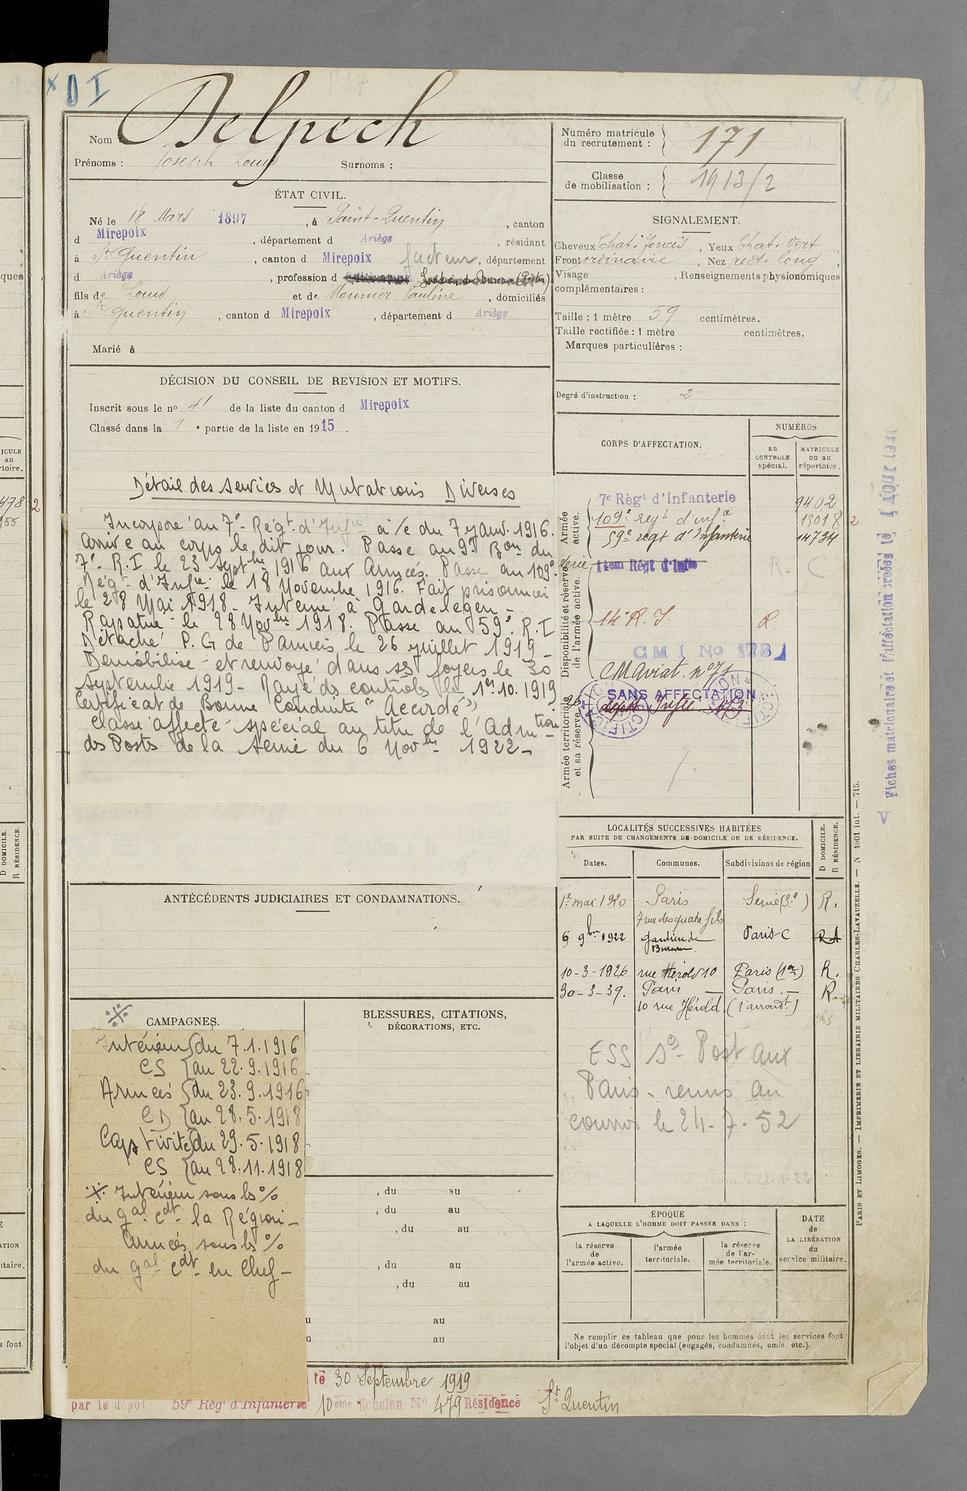 DI
Nom Delpech
Prénoms : Joseph Louis Surnoms :
Numéro matricule du recrutement : 171
Classe de mobilisation : 1913/2
ÉTAT CIVIL.
Né le 18 Mars 1897, à Saint-Quentin, canton
d Mirepoix, département d Ariège, résidant
à St Quentin, canton d Mirepoix facteur, département
d Ariège, profession d
fils de Louis et de Mounier Pauline, domiciliés
à St Quentin, canton d Mirepoix, département d Ariège
Marié à
SIGNALEMENT.
Cheveux Chat. foncé, Yeux Chat. vert
Front ordinaire, Nez rect. long
Visage , Renseignements physionomiques
complémentaires :
Taille : 1 mètre 59 centimètres.
Taille rectifiée : 1 mètre centimètres.
Marques particulières :
Degré d'instruction : 2
DÉCISION DU CONSEIL DE REVISION ET MOTIFS.
Inscrit sous le no 41 de la liste du canton d Mirepoix
Classé dans la 1e partie de la liste en 1915.
Détail des Services et Mutations Diverses
Incorporé au 7e Régt d'Infie à/c du 7 janv. 1916.
Arrivé au corps le dit jour. Passé au 9e Bon du
7e R.I le 23 Septbre 1916 aux Armées. Passé au 109e
Régt d'Infie le 18 Novembre 1916. Fait prisonnier
le 28 Mai 1918. Interné à Gardelegen –
Rapatrié le 28 Novbre 1918. Passé au 59e R.I
Détaché P.G de Pamiers le 26 juillet 1919 –
Démobilisé et renvoyé dans ses foyers le 30
Septembre 1919 – Rayé des contrôles le 1er 10.1919
Certificat de Bonne Conduite "Accordé"
Classé affecté spécial au titre de l'Admtion
des Postes de la Seine du 6 Novbre 1922 –
CORPS D'AFFECTATION.
NUMÉROS
AU CONTRÔLE spécial.
MATRICULE ou au répertoire.
Armée active.
7e Régt d'Infanterie 9402
109e régt d'infie 15018
59e régt d'Infanterie 14734
Disponibilité et réserve de l'armée active.
14em Régt d'Inftie R. C
14e R.I R.
CMI No 173
CM Aviat. no 71
SANS AFFECTATION
dépôt Inftie 213
Armée territoriale et sa réserve
LOCALITÉS SUCCESSIVES HABITÉES
PAR SUITE DE CHANGEMENTS DE DOMICILE OU DE RÉSIDENCE.
Dates. Communes. Subdivisions de région
D DOMICILE. R RÉSIDENCE.
1er mai 1920 Paris Seine (3e) R.
7 rue des quatre fils
6 9bre 1922 Gardien de Bureau Paris-C RA
10-3-1926 rue Hérold 10 Paris (1er) R.
30-3-39. Paris – Paris. – R.
10 rue Hérold (1 arrondt)
ESS Paris remis au
courrier le 24-7-52
ANTÉCÉDENTS JUDICIAIRES ET CONDAMNATIONS.
CAMPAGNES.
Intérieur du 7.1.1916
CS au 22.9.1916
Armées du 23.9.1916
CD au 28.5.1918
Captivité du 29.5.1918
CS au 28.11.1918
Intérieur sous les %
du gal cdt la Région –
Armées sous les %
du gal cdt en Chef –
BLESSURES, CITATIONS,
DÉCORATIONS, ETC.
, du au
, du au
, du au
, du au
, du au
au
au
ÉPOQUE
A LAQUELLE L'HOMME DOIT PASSER DANS :
la réserve de l'armée active.
l'armée territoriale.
la réserve de l'armée territoriale.
DATE de LA LIBÉRATION du service militaire.
Ne remplir ce tableau que pour les hommes dont les services font
l'objet d'un décompte spécial (engagés, condamnés, omis, etc.).
le 30 Septembre 1919
par le dépôt 59e Régt d'Infanterie 10ème Echelon No 479 Résidence St Quentin
PARIS ET LIMOGES. — IMPRIMERIE ET LIBRAIRIE MILITAIRES CHARLES-LAVAUZELLE. — N 1001 int. — 715.